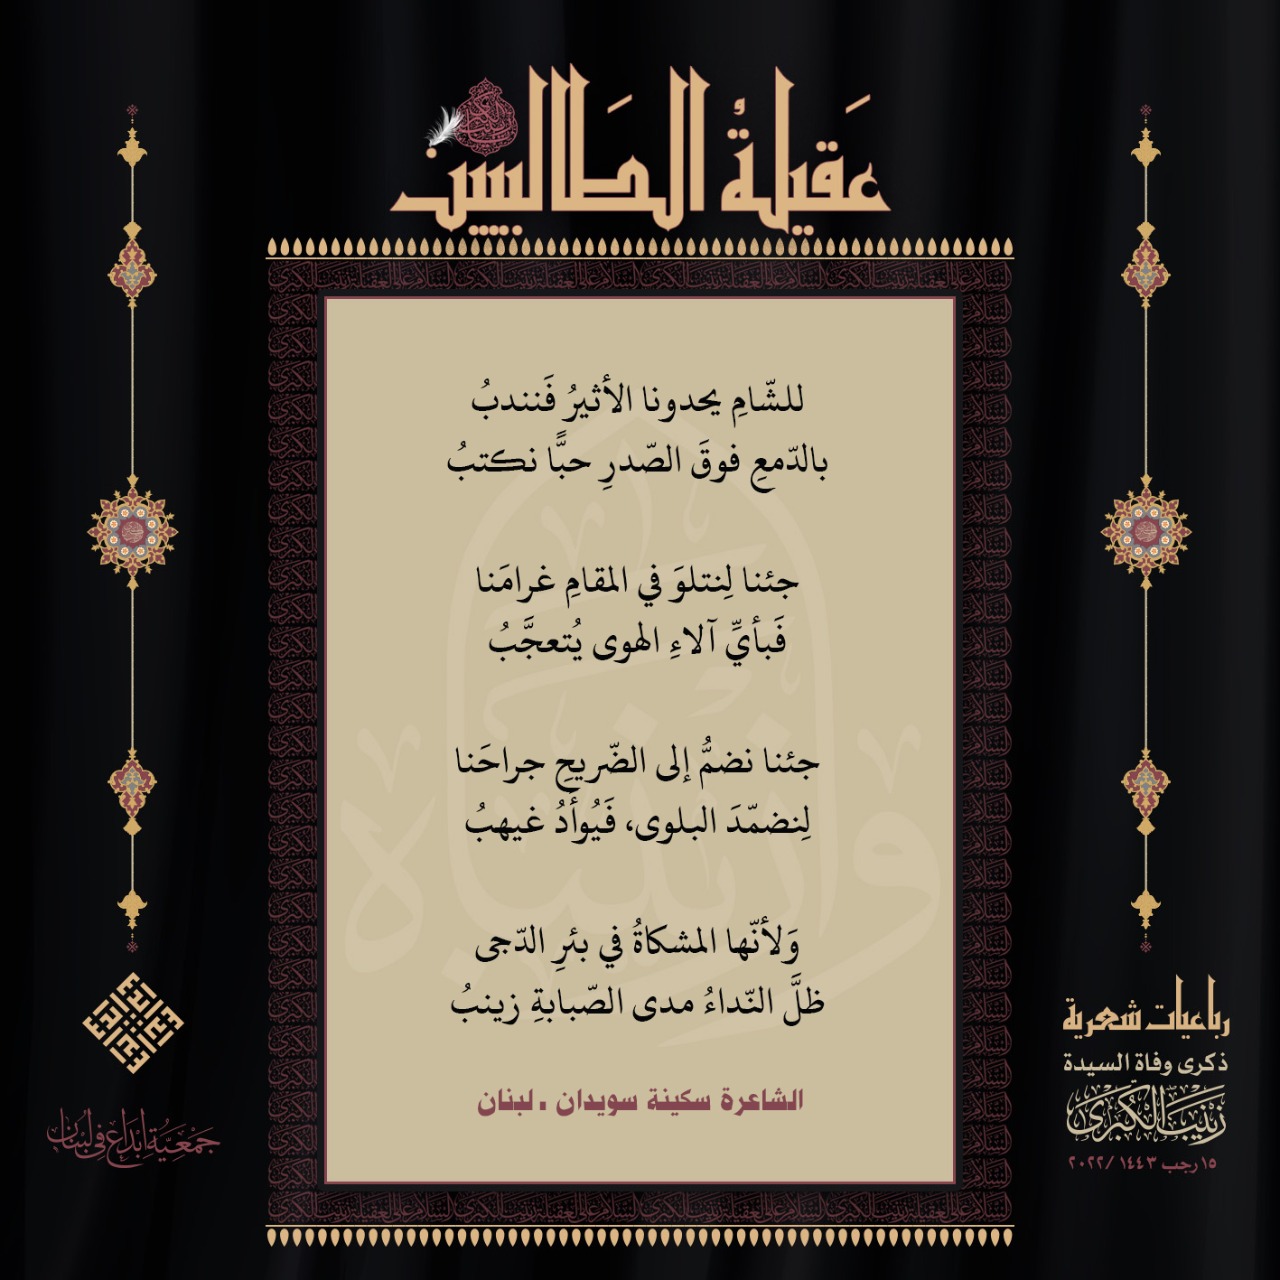 عَقيلةُ الطَالبيين
للشّامِ يحدونا الأثيرُ فَنندبُ
بالدّمعِ فوقَ الصّدرِ حبًّا نكتبُ
جئنا لِنتلوَ في المقامِ غرامَنا
فَبأيِّ آلاءِ الهوى يُتعجَّبُ
جئنا نضمُّ إلى الضّريحِ جراحَنا
لِنضمّدَ البلوى، فَيُوأَدُ غيهبُ
وَلأنّها المشكاةُ في بئرِ الدّجى
ظلَّ النّداءُ مدى الصّبابةِ زينبُ
الشاعرة سكينة سويدان . لبنان
رباعيات شعرية
ذكرى وفاة السيدة
زَيْنَبَ الْكُبْرَىٰ
١٥ رجب ١٤٤٣ /٢٠٢٢
جَمْعِيَّةُ إِبْدَاع فِي لُبْنَان
وازينباه